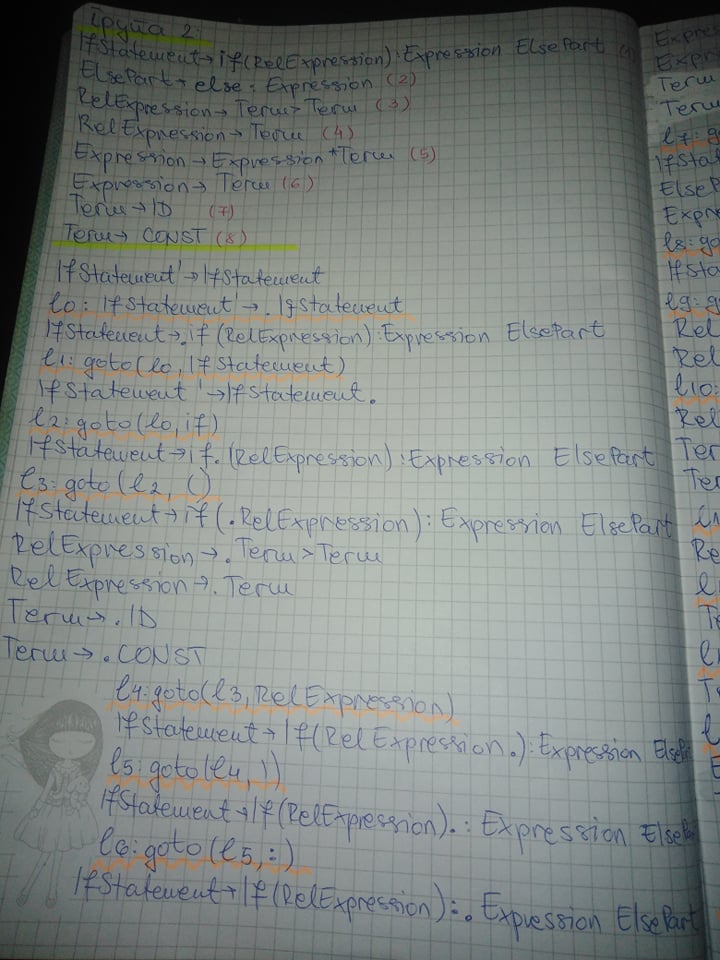 Група 2:
IfStatement → if(RelExpression):Expression ElsePart (1)
ElsePart → else: Expression (2)
RelExpression → Term > Term (3)
RelExpression → Term (4)
Expression → Expression * Term (5)
Expression → Term (6)
Term → ID (7)
Term → CONST (8)
IfStatement' → IfStatement
l0: IfStatement' → .IfStatement
IfStatement → .if (RelExpression):Expression ElsePart
l1: goto(l0, IfStatement)
IfStatement' → IfStatement.
l2: goto(l0, if)
IfStatement → if.(RelExpression):Expression ElsePart
l3: goto(l2, ()
IfStatement → if(.RelExpression): Expression ElsePart
RelExpression → .Term > Term
RelExpression → .Term
Term → .ID
Term → .CONST
l4: goto(l3, RelExpression)
IfStatement → If(RelExpression.):Expression Else
l5: goto(l4, ))
IfStatement → If(RelExpression).: Expression Else
l6: goto(l5, :)
IfStatement → If(RelExpression):. Expression ElsePart
Expres
Expre
Term
Term
l7: g
IfStat
ElseP
Expre
l8: go
IfSta
l9: g
Rel
Rel
l10:
Rel
Ter
Te
Re